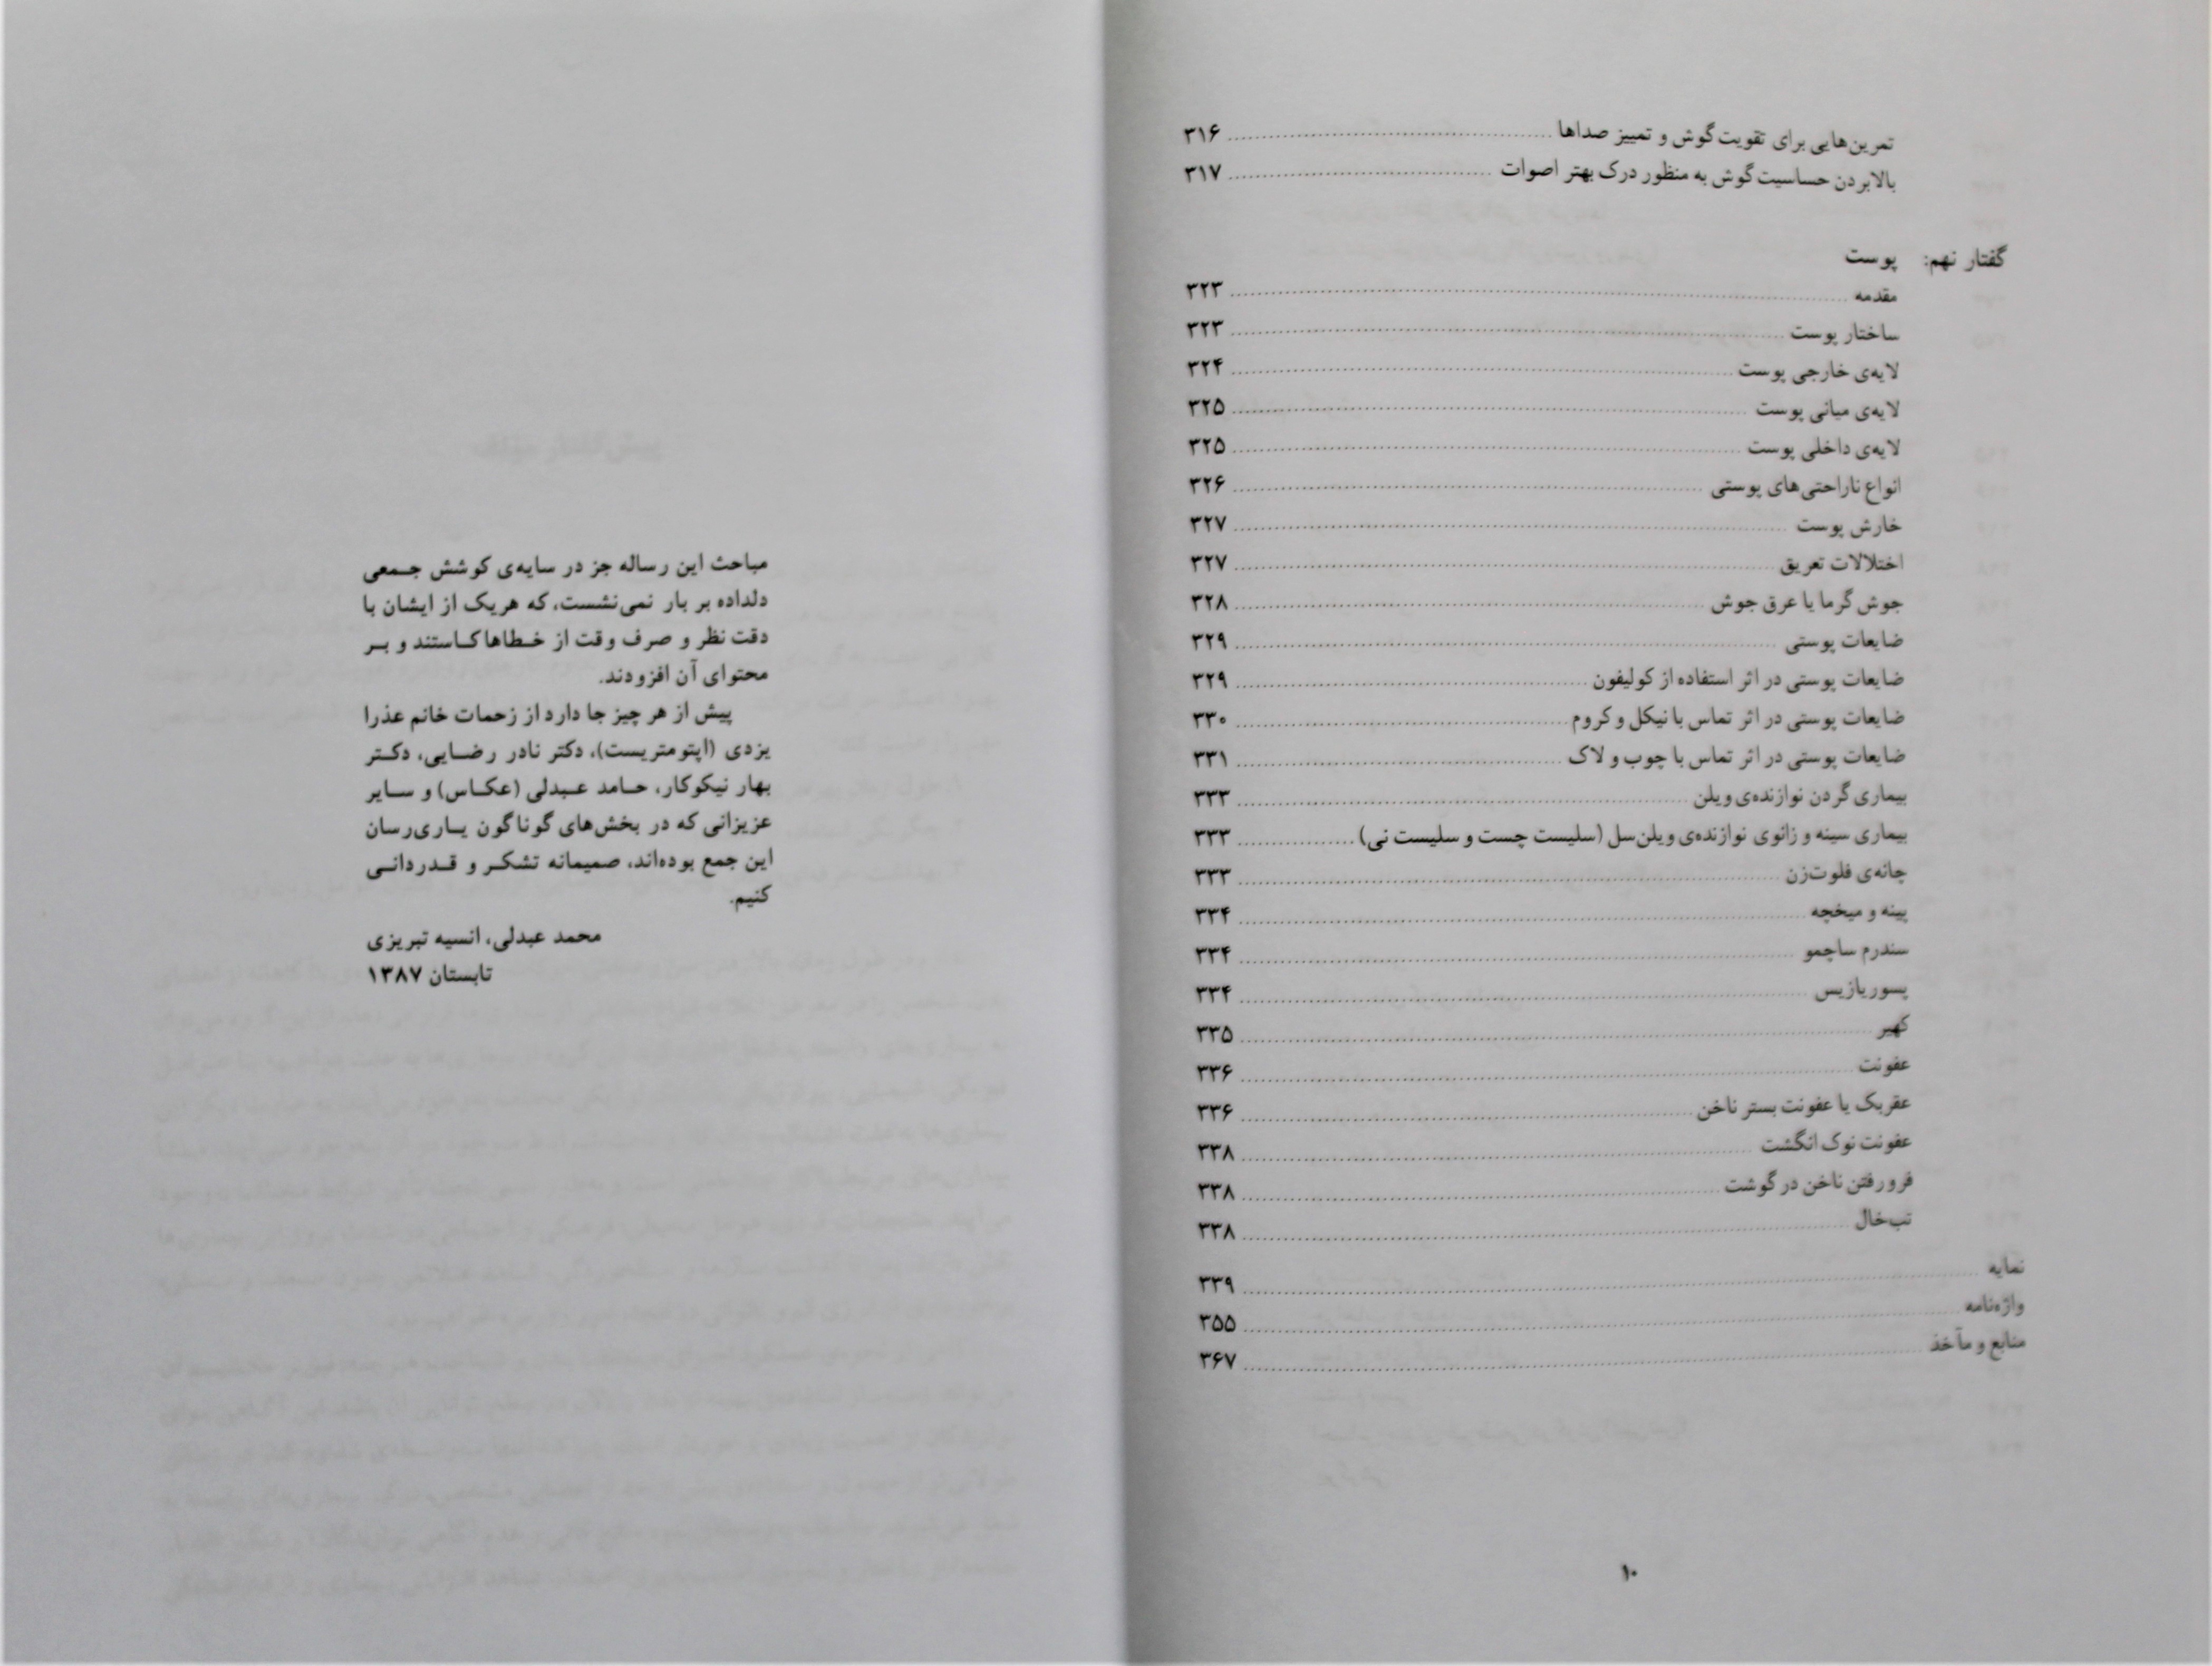 تمرین‌هایی برای تقویت گوش و تمییز صداها ۳۱۶
بالابردن حساسیت گوش به منظور درک بهتر اصوات ۳۱۷
گفتار نهم: پوست
مقدمه ۳۲۳
ساختار پوست ۳۲۳
لایه‌ی خارجی پوست ۳۲۴
لایه‌ی میانی پوست ۳۲۵
لایه‌ی داخلی پوست ۳۲۵
انواع ناراحتی‌های پوستی ۳۲۶
خارش پوست ۳۲۷
اختلالات تعریق ۳۲۷
جوش گرما یا عرق جوش ۳۲۸
ضایعات پوستی ۳۲۹
ضایعات پوستی در اثر استفاده از کولیفون ۳۲۹
ضایعات پوستی در اثر تماس با نیکل و کروم ۳۳۰
ضایعات پوستی در اثر تماس با چوب و لاک ۳۳۱
بیماری گردن نوازنده‌ی ویلن ۳۳۳
بیماری سینه و زانوی نوازنده‌ی ویلن‌سل (سلیست چست و سلیست نی) ۳۳۳
چانه‌ی فلوت‌زن ۳۳۳
پینه و میخچه ۳۳۴
سندرم ساچمو ۳۳۴
پسوریازیس ۳۳۴
کهیر ۳۳۵
عفونت ۳۳۶
عقربک یا عفونت بستر ناخن ۳۳۶
عفونت نوک انگشت ۳۳۸
فرورفتن ناخن در گوشت ۳۳۸
تب‌خال ۳۳۸
نمایه ۳۳۹
واژه‌نامه ۳۵۵
منابع و مآخذ ۳۶۷
۱۰
مباحث این رساله جز در سایه‌ی کوشش جمعی
دلداده بر بار نمی‌نشست، که هریک از ایشان با
دقت نظر و صرف وقت از خطاها کاستند و بر
محتوای آن افزودند.
پیش از هر چیز جا دارد از زحمات خانم عذرا
یزدی (اپتومتریست)، دکتر نادر رضایی، دکتر
بهار نیکوکار، حامد عبدلی (عکاس) و سایر
عزیزانی که در بخش‌های گوناگون یاری‌رسان
این جمع بوده‌اند، صمیمانه تشکر و قدردانی
کنیم.
محمد عبدلی، انسیه تبریزی
تابستان ۱۳۸۷